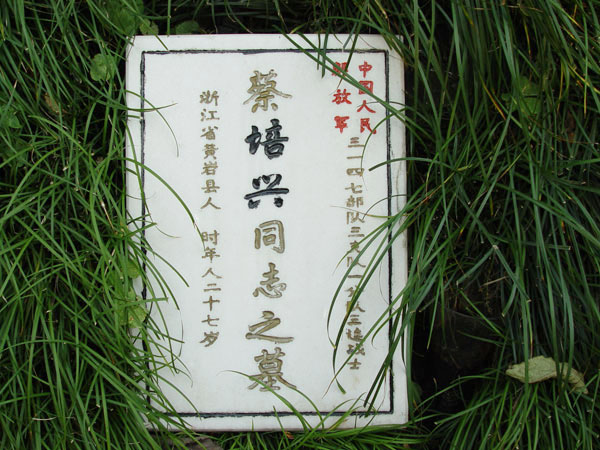 中国人民
解放军
三一四七部队三支队一分队三连战士
蔡培兴同志之墓
浙江省黄岩县人 时年人二十七岁